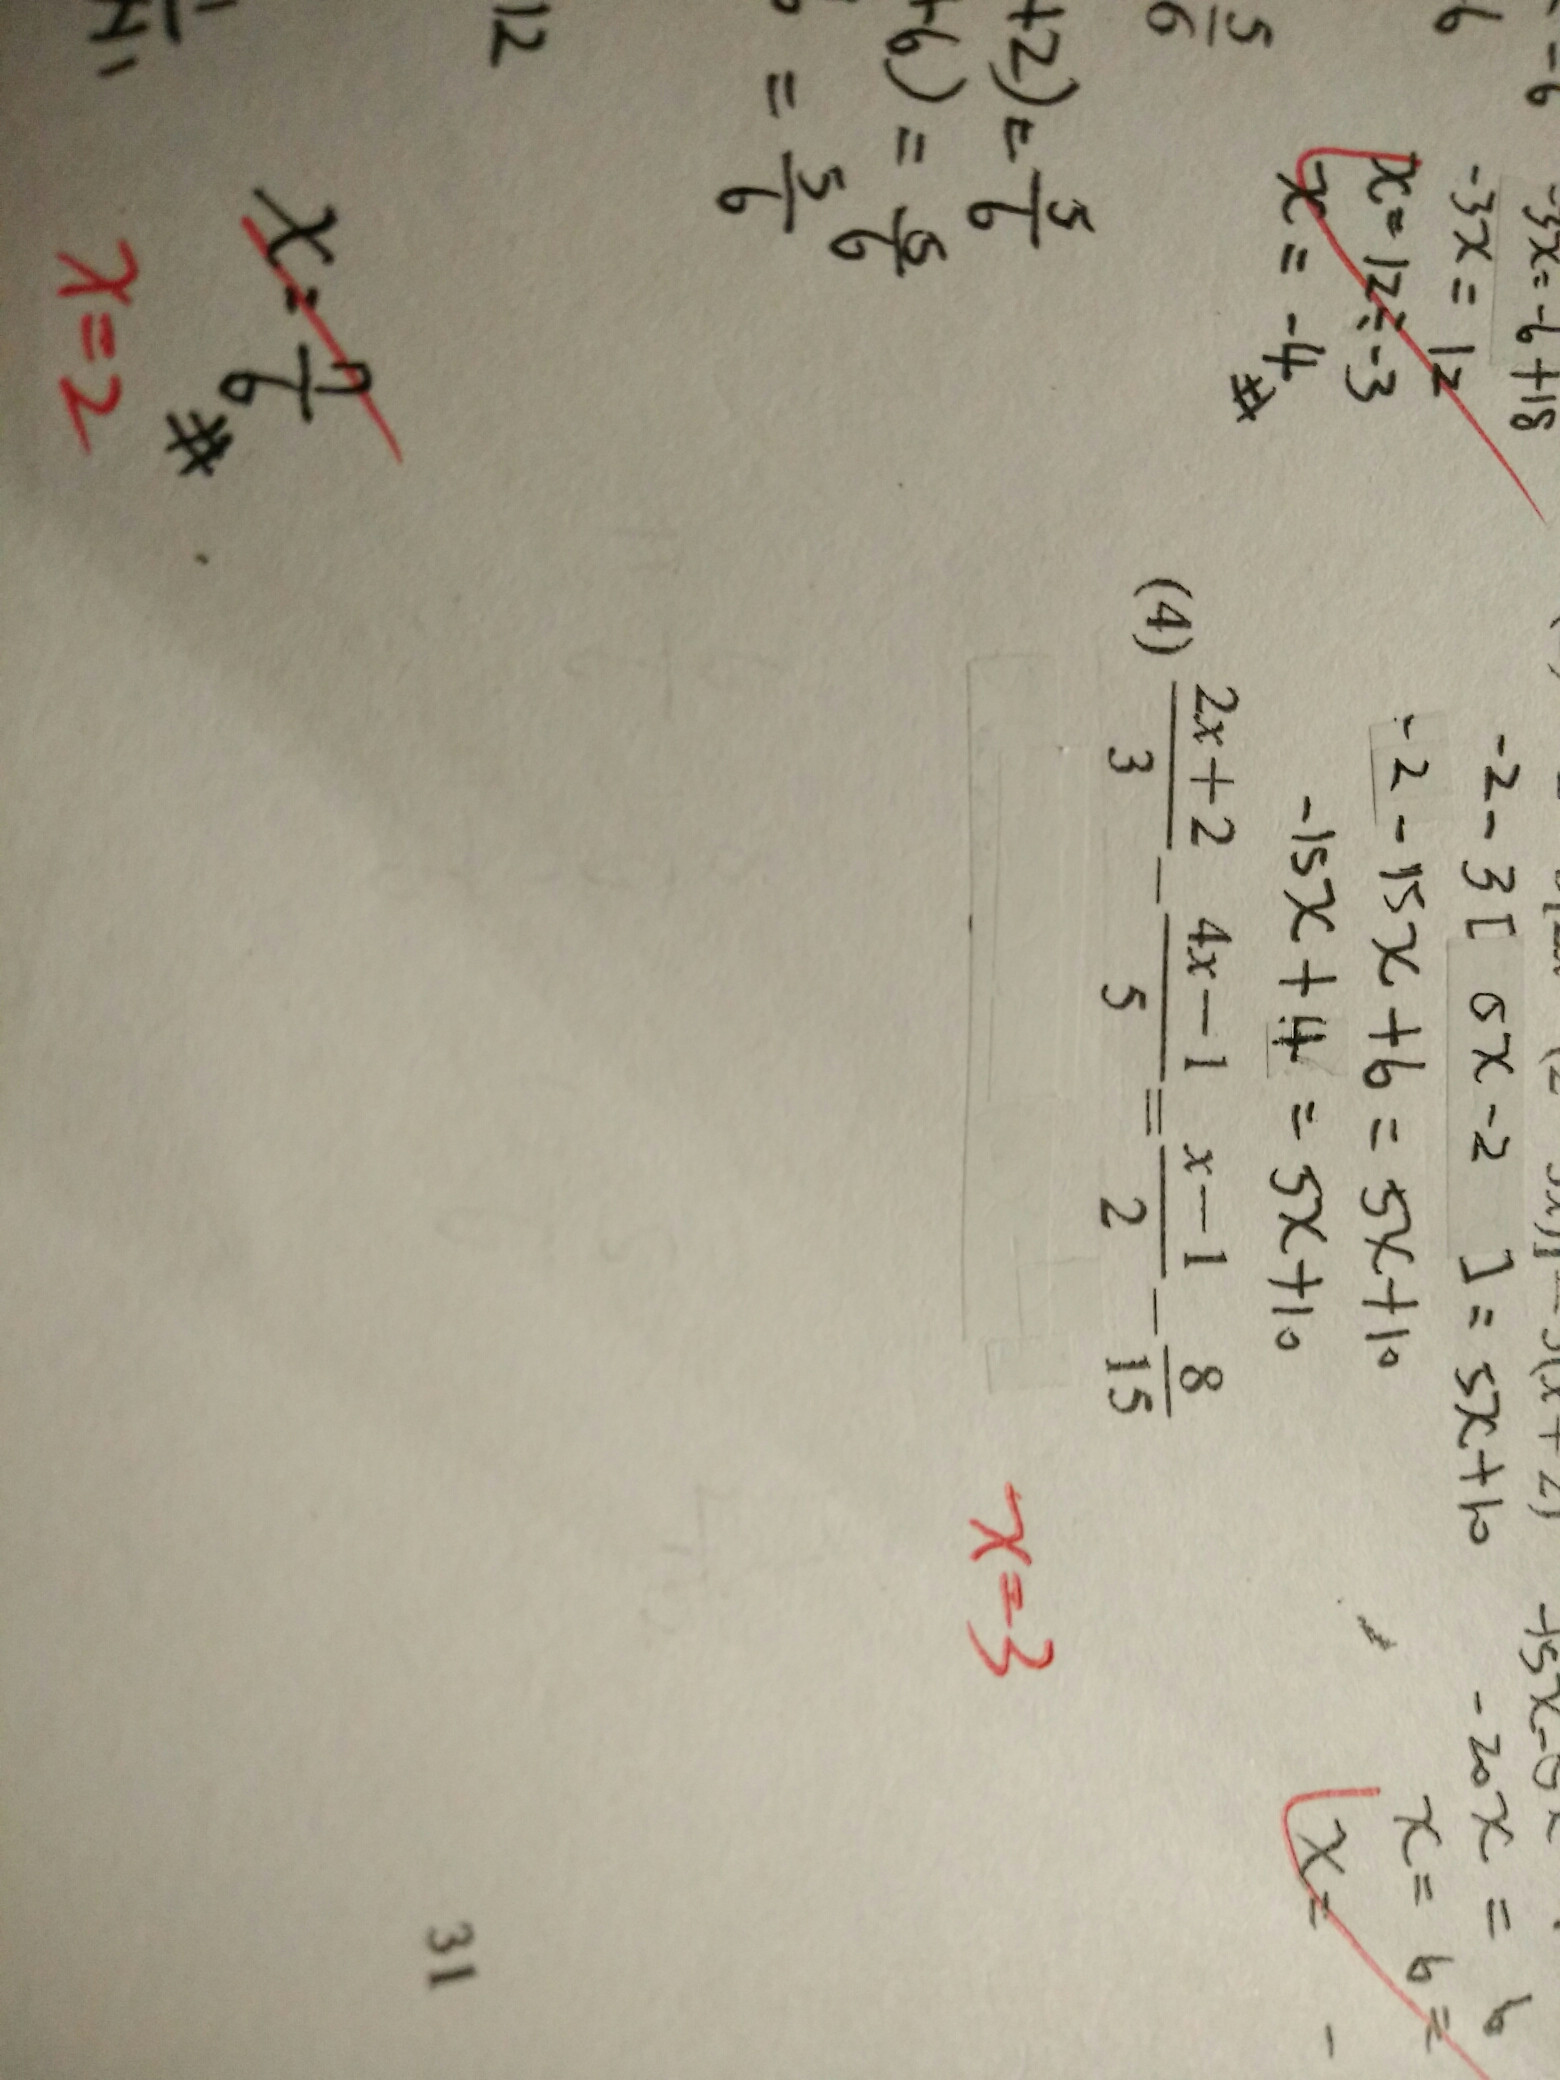 -6
-3x = -6 +18
6
-3x = 12
x = 12 ÷ -3
x = -4 #
5/6
+2) = 5/6
+6) = 5/6
= 5/6
12
x = 7/6 #
x = 2
-2 - 3[ 5x -2 ] = 5x +10
-2 - 15x + 6 = 5x +10
-15x + 4 = 5x +10
-20x = 6
x = 6 ÷
x = -
(4) (2x+2)/3 - (4x-1)/5 = (x-1)/2 - 8/15
x = 3
31